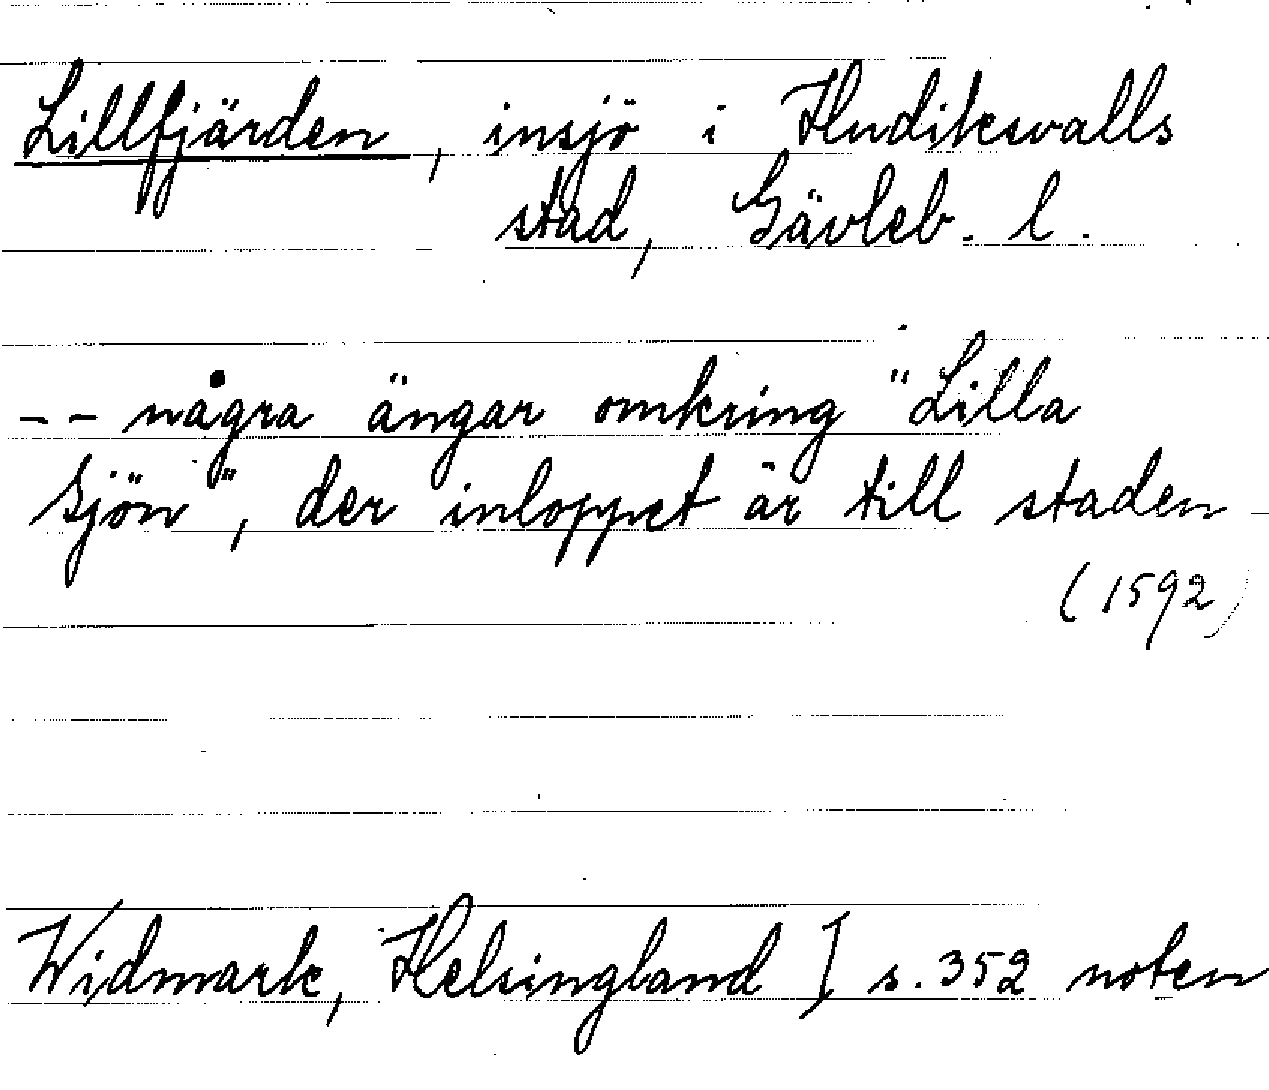 Lillfjärden, insjö i Hudiksvalls
stad, Gävleb. l.
-- några ängar omkring "Lilla
Sjön", der inloppet är till staden
(1592)
Widmark, Helsingland I s. 352 noten